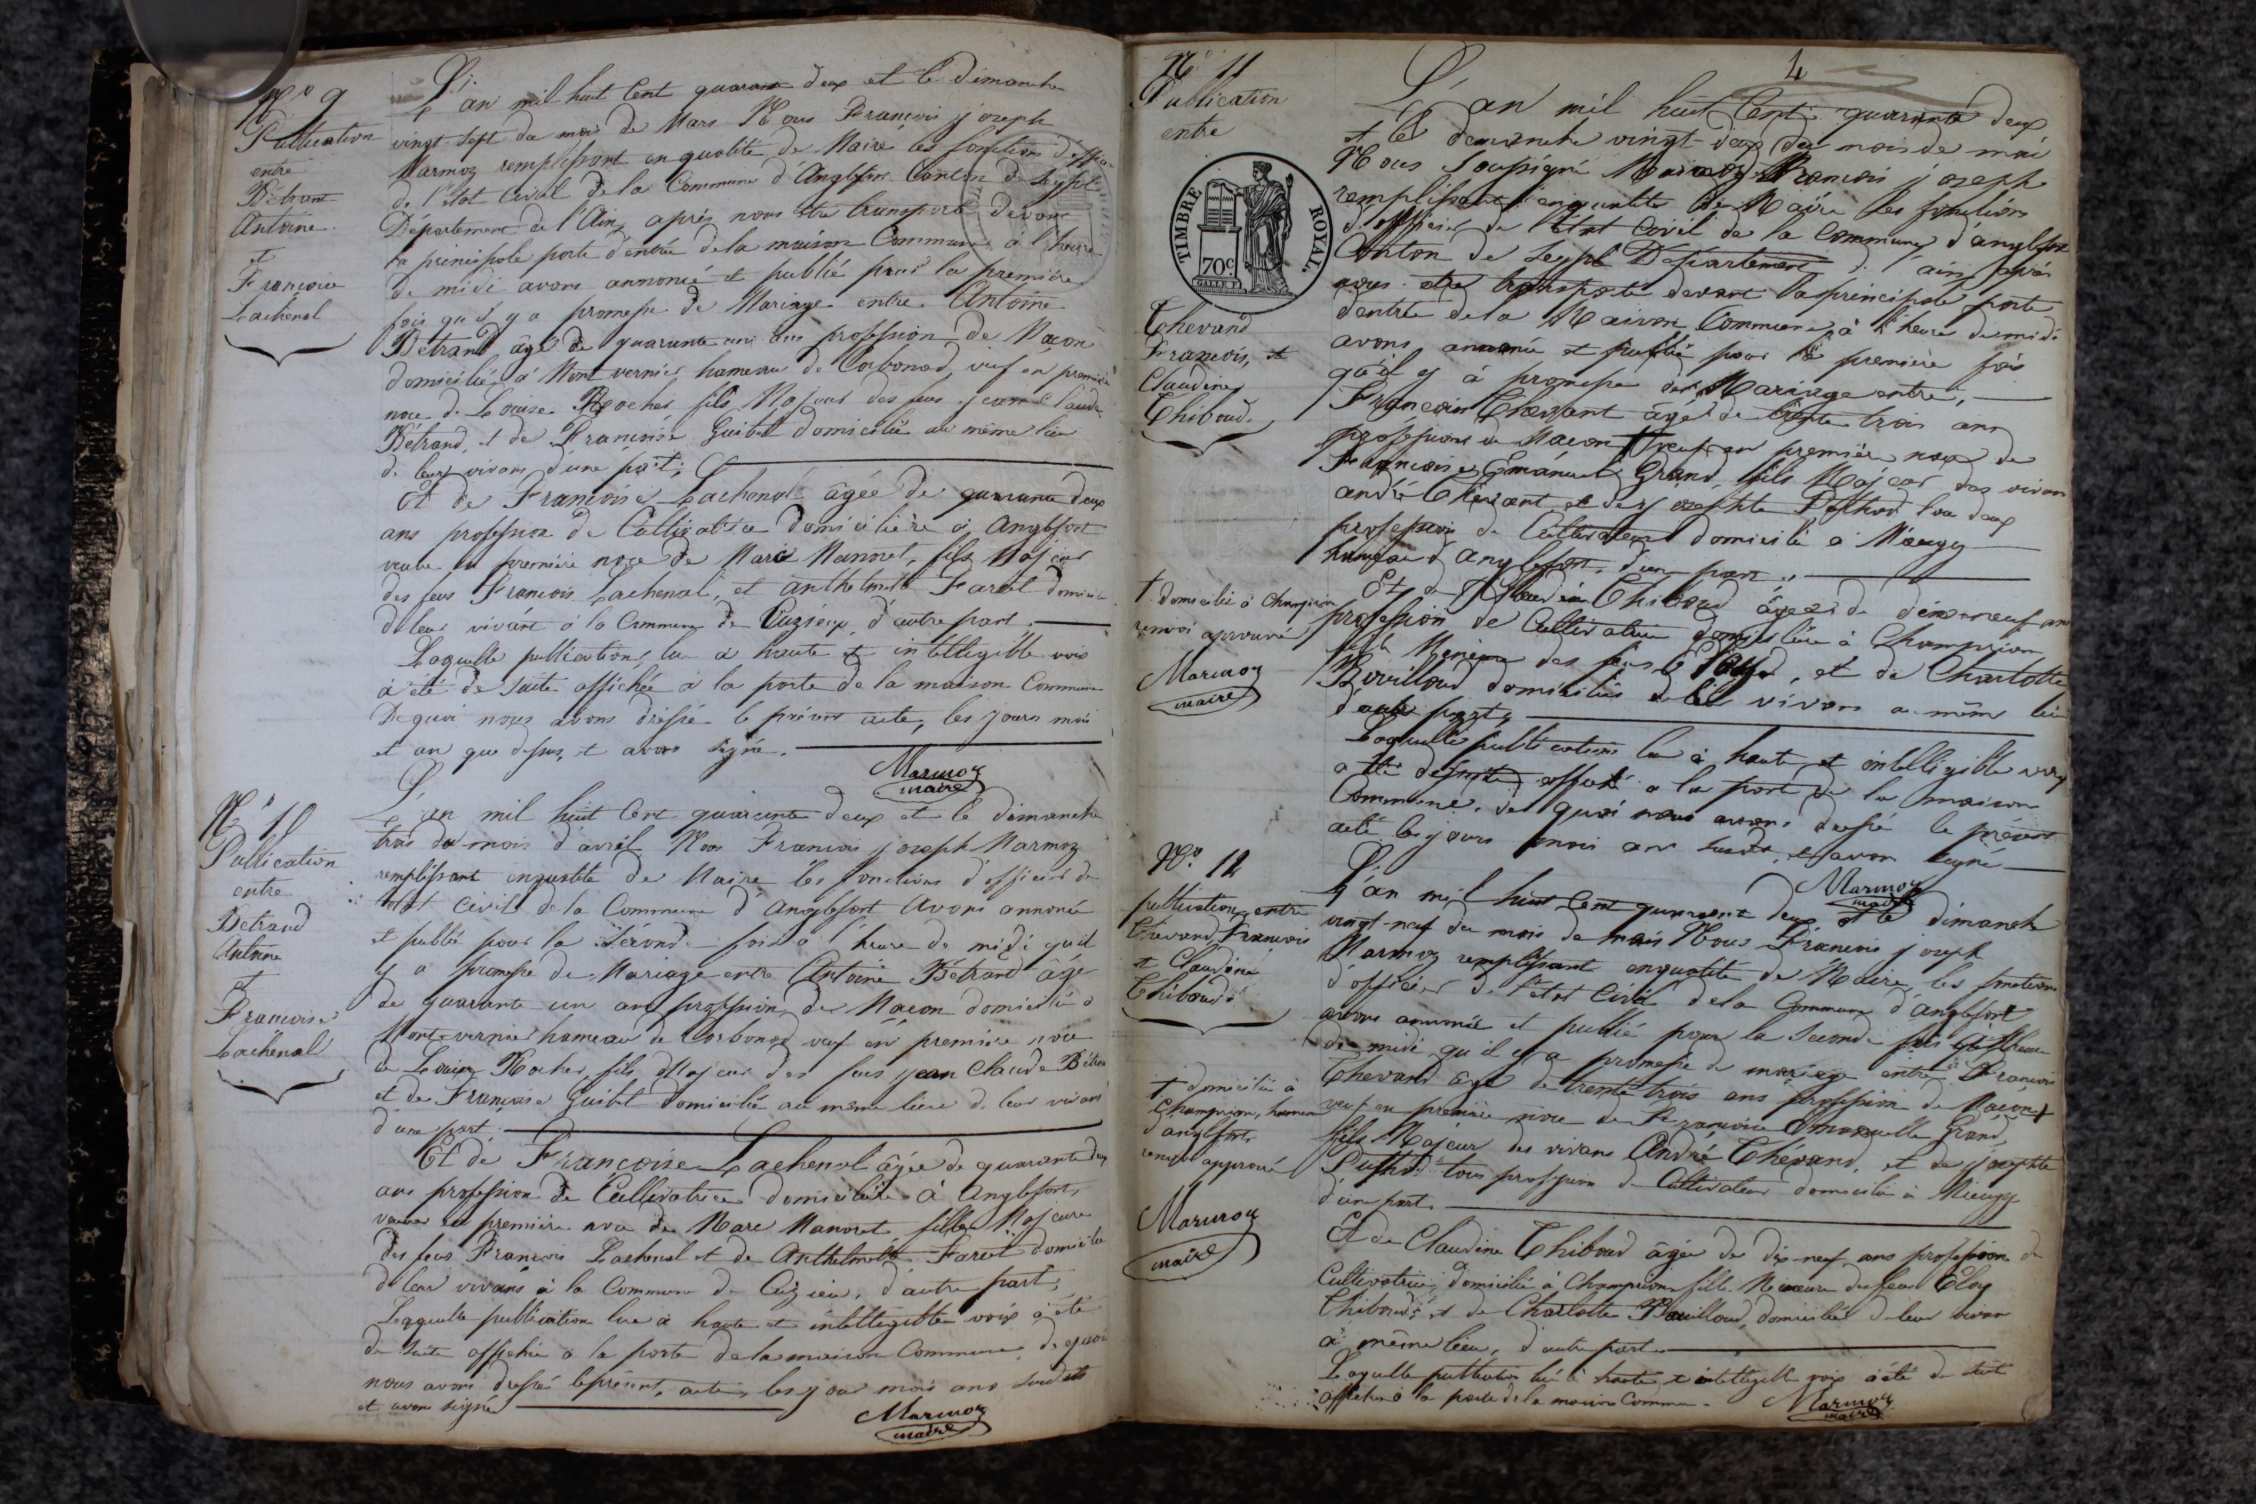 N.o 9
Publication
entre
Bétrand
Antoine
et
Françoise
Lachenal
L'an mil huit Cent quarante deux et le dimanche
vingt-sept du mois de Mars Nous François joseph
Marmoz remplissant en qualité de Maire les fonctions d'officier
de l'état Civil de la Commune d'Anglefort Canton de Seyssel
Département de l'Ain, après nous être transporté devant
la principale porte d'entrée de la maison Commune à l'heure
de midi avons annoncé et publié pour la première
fois qu'il y a promesse de Mariage entre Antoine
Bétrand âgé de quarante un ans profession de Maçon
domicilié à Mont vernier hameau de Corbonod, veuf en première
noce de Louise Rocher fils Majeur des feus jean Claude
Bétrand, et de Françoise Guibet domicilié au même lieu
de leur vivans d'une part;
Et de Françoise Lachenal âgée de quarante deux
ans profession de Cultivatrice domicilière à Anglefort
veuve en première noce de Marie Mannoret, fille Majeur
des feus François Lachenal, et Anthelmette Faret domicilié
de leur vivant à la Commune de Cuzieux, d'autre part.
Laquelle publication, lu à haute et intelligible voix
à été de suite affichée à la porte de la maison Commune
De quoi nous avons dressé le présent acte, les jours mois
et an que dessus, et avons signé.
Marmoz
maire
N.o 10
Publication
entre
Betrand
Antoine
et
Françoise
Lachenal
L'an mil huit Cent quarante deux et le dimanche
trois du mois d'avril Nous François joseph Marmoz
remplissant enqualité de Maire les fonctions d'officier de
l'état Civil de la Commune d'Anglefort Avons annoncé
et publié pour la Séconde fois à l'heure de midi qu'il
y a promesse de Mariage entre Antoine Bétrand âgé
de quarante un ans profession de Maçon domicilié à
Mont-vernier hameau de Corbonod veuf en première noce
de Louise Rocher, fils Majeur des feus jean Claude Bétran
et de Françoise Guibet domicilié au même lieu de leur vivans
d'une part.
Et de Françoise Lachenal âgée de quarante deux
ans profession de Cultivatrice domicilière à Anglefort,
veuve en première noce de Marc Manoret fille Majeure
des feus François Lachenal et de Anthelmette Faret domicilié
de leur vivans à la Commune de Cuzieu, d'autre part,
Laquelle publication lue à haute et intelligible voix à été
de suite affichée à la porte de la maison Commune de quoi
nous avons dressé le présent, acte, les jour mois ans susdits
et avons signé
Marmoz
maire
4
N.o 11
Publication
entre
TIMBRE ROYAL.
70c
Thevand
François, et
Claudine
Thiboud.
L'an mil huit Cent quarante deux
et le dimanche vingt-deux du mois de mai
Nous Soussigné Marmoz François joseph
remplissant enqualité de Maire les fonctions
d'officier de l'état Civil de la Commune d'anglefort
Canton de Seyssel Département de l'ain, après
nous être transporté devant la principale porte
d'entrée de la Maison Commune, à l'heure de midi
avons, annoncé et publié pour la première fois
qu'il y à promesse de Mariage entre,
François Thevant âgé de trente trois ans
profession de Maçon veuf en première noce de
Françoise Emanuel Grand, fils Majeur des vivans
andré Thevant et de josephte Pothod tou deux
profession de Cultivateur domicilié à Mieugy
hameau d'anglefort, d'une part,
Et de Claudine Thiboud âgée de dixneuf ans
profession de Cultivatrice domicilière à Champrion
fille Mineure des feus Eloy, et de Charlotte
Bovilloud domiciliés de leur vivans a même lieu
d'autre part,
Laquelle publication lue à haute et intelligible voix
a été de suite affiché a la porte de la maison
Commune. de quoi nous avons dressé le présent
acte les jours mois an susdits, et avons signé
Marmoz
maire
+ domicilié à Champrion
renvoi approuvé
Marmoz
maire
N.o 12
publication entre
Thevand François
et Claudine
Thiboud
L'an mil huit Cent quarante deux et le dimanche
vingt-neuf du mois de mai Nous François joseph
Marmoz remplissant enqualité de Maire, les fonctions
d'officier de l'état Civil dela Commune d'anglefort
avons annoncé et publié pour la seconde fois à l'heure
de midi qu'il y a promesse de mariage entre François
Thevand âgé de trente trois ans profession de Maçon +
veuf en première noce de Françoise Emanuelle Grand,
fils Majeur des vivans André Thévand, et de josephte
Pothod tous profession de Cultivateur domicilié à Mieugy
d'une part.
Et de Claudine Thiboud âgée de dix-neuf ans profession de
Cultivatrice, domiciliée à Champrion fille Mineure des feus Eloy
Thiboud, et de Charlotte Bouilloud, domicilié de leur vivan
à même lieu, d'autre part.
Laquelle publication lue à haute et intelligible voix à été de suite
affichée à la porte de la maison Commune.
Marmoz
maire
+ domicilié à
Champrion, hameau
d'anglefort,
renvoi approuvé
Marmoz
maire